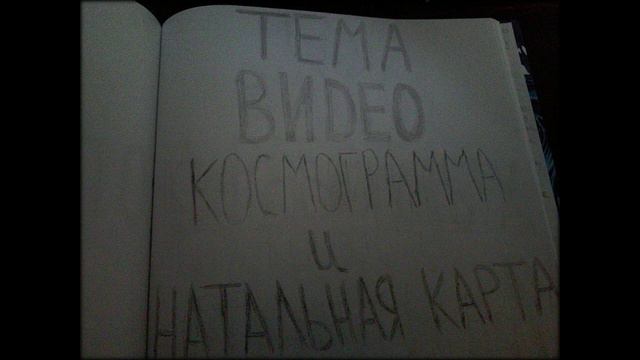 ТЕМА
ВИДЕО
КОСМОГРАММА
и
НАТАЛЬНАЯ КАРТА